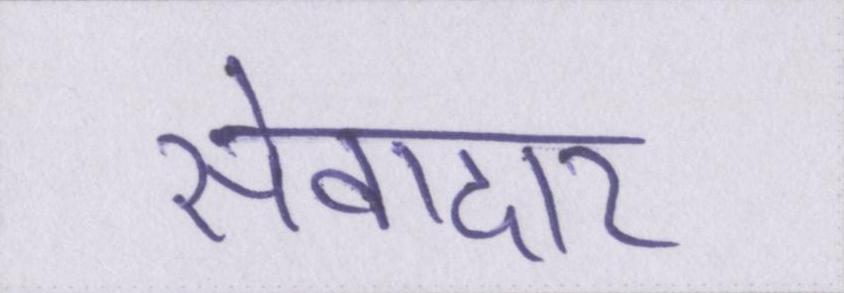 सेवादार